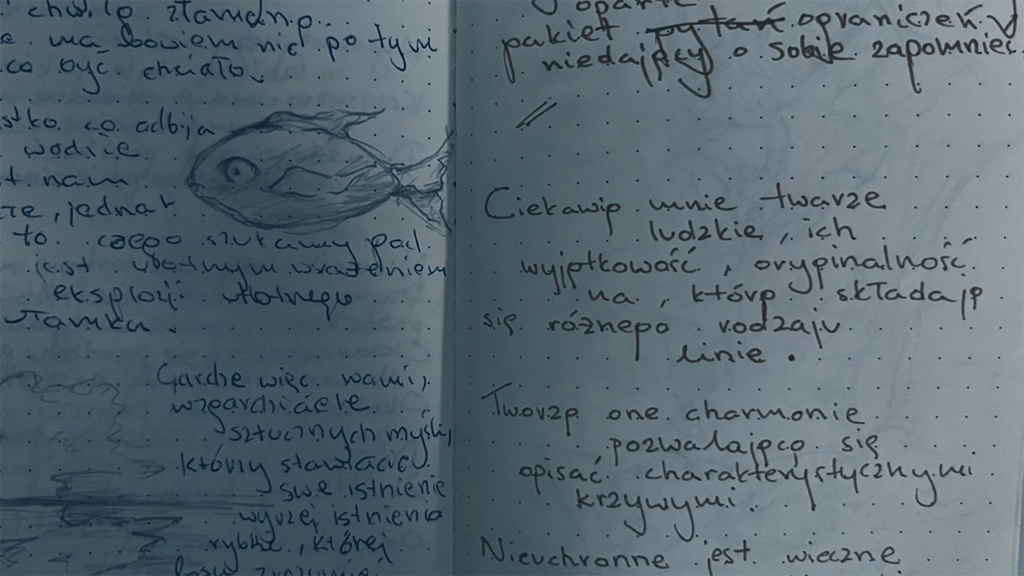 chwilę złamano...
e ma bowiem nic po tym
co być chciało.
stko co odbija
wodzie
t nam
rze, jednak
to czego szukamy pod
jest ulotnym wrażeniem
eksplozji ulotnego
ułamku.
Gardzę więc wami,
wzgardziciele
sztucznych myśli,
którzy stawiacie
swe istnienie
wyżej istnienia
rybki, której
losu
O oparte
pakiet pytań ograniczeń
niedający o sobie zapomnieć
Ciekawią mnie twarze
ludzkie, ich
wyjątkowość, oryginalność
na, którą składają
się różnego rodzaju
linie.
Tworzą one charmonię
pozwalającą się
opisać charakterystycznymi
krzywymi.
Nieuchronne jest wieczne